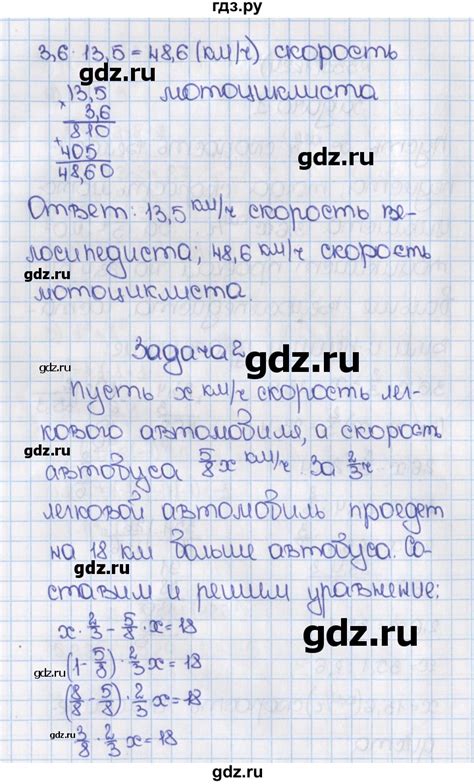 гдз.ру
3,6 · 13,5 = 48,6 (км/ч) скорость
gdz.ru
× 13,5 мотоциклиста
3,6
+ 810
405
48,60
gdz.ru
Ответ: 13,5 км/ч скорость ве-
gdz.ru
лосипедиста; 48,6 км/ч скорость
gdz.ru
мотоциклиста.
Задача 2
gdz.ru
gdz.ru
Пусть x км/ч скорость лег-
кового автомобиля, а скорость
автобуса 5/8 x км/ч. За 2/3 ч
gdz.ru
легковой автомобиль проедет
на 18 км больше автобуса. Со-
ставим и решим уравнение:
gdz.ru
x · 2/3 - 5/8 · x = 18
gdz.ru
(1 - 5/8) · 2/3 x = 18
gdz.ru
(8/8 - 5/8) · 2/3 x = 18
3/8 · 2/3 x = 18
gdz.ru
gdz.ru